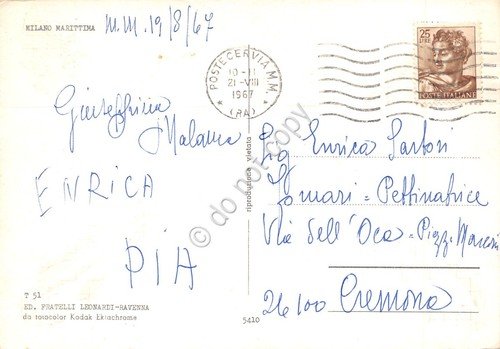 MILANO MARITTIMA
M.M. 19/8/67
POSTE CERVIA M.M.
10-11
21-VIII
1967
(RA)
25
LIRE
POSTE ITALIANE
Giuseppina
Malama
ENRICA
PIA
riproduzione vietata
do not copy
Sig Enrica Sartori
Somari = Pettinatrice
Via dell'Oca = Piazz. Marconi
26100 Cremona
T 51
ED. FRATELLI LEONARDI-RAVENNA
da totocolor Kodak Ektachrome
5410